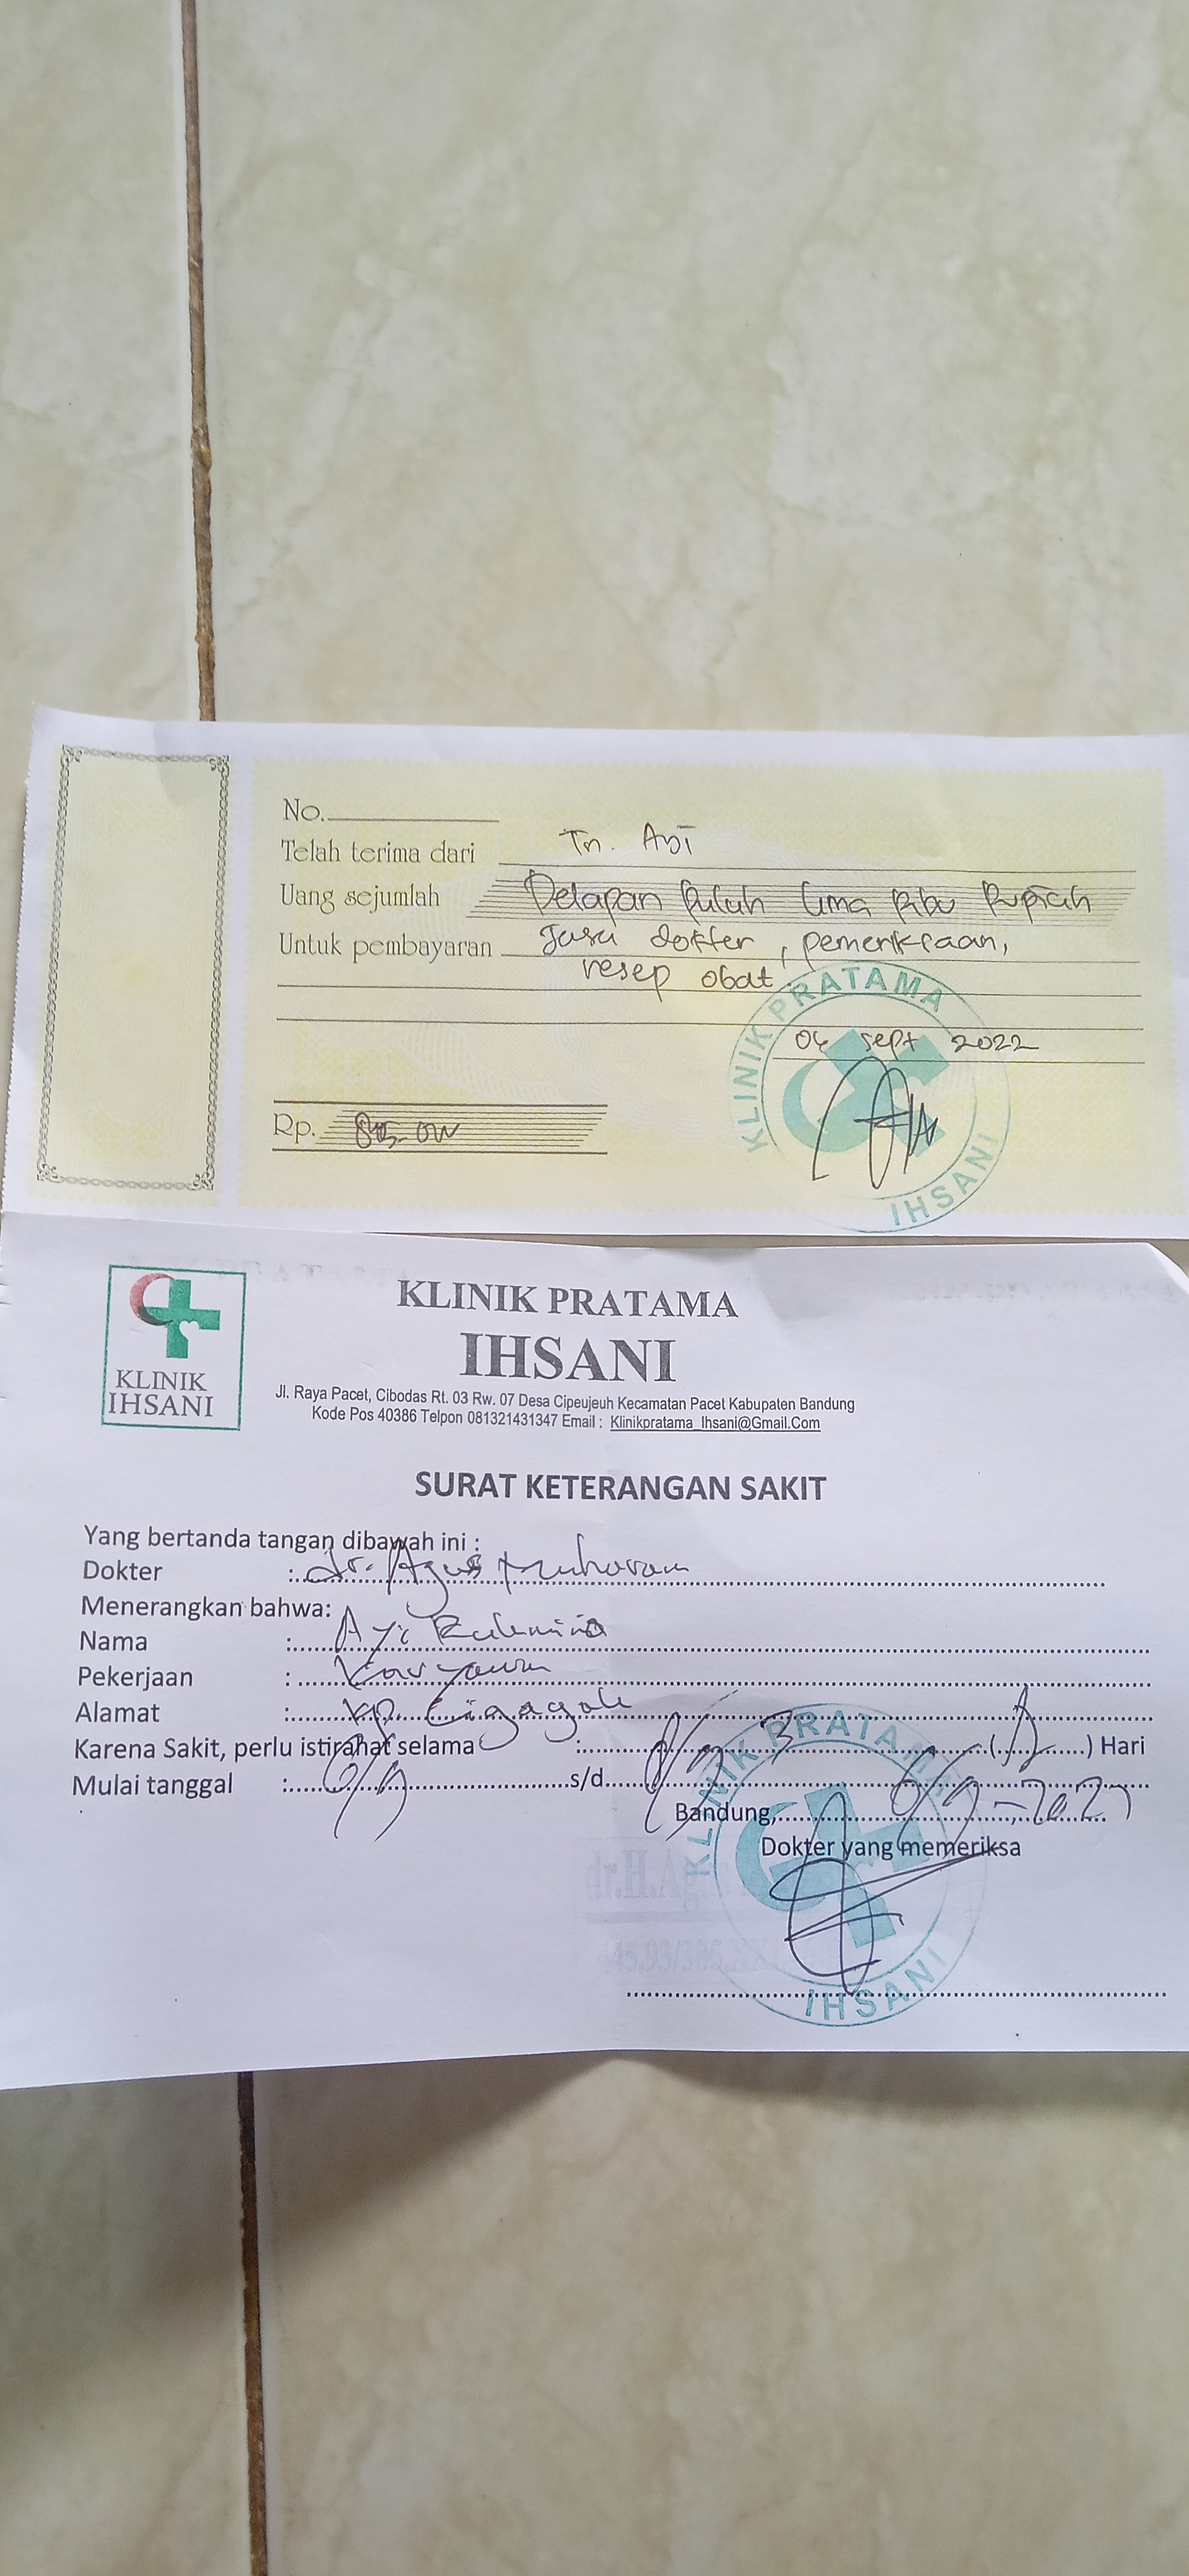 No.
Telah terima dari Tn. Ayi
Uang sejumlah Delapan puluh lima Ribu Rupiah
Untuk pembayaran Jasa dokter, pemeriksaan,
resep obat
06 sept 2022
Rp.
KLINIK PRATAMA
IHSANI
KLINIK
IHSANI
KLINIK PRATAMA
IHSANI
Jl. Raya Pacet, Cibodas Rt. 03 Rw. 07 Desa Cipeujeuh Kecamatan Pacet Kabupaten Bandung
Kode Pos 40386 Telpon 081321431347 Email : Klinikpratama_Ihsani@Gmail.Com
SURAT KETERANGAN SAKIT
Yang bertanda tangan dibawah ini :
Dokter : dr. Agus Muharam
Menerangkan bahwa:
Nama : Ayi
Pekerjaan : Karyawan
Alamat : kp. Cigagak
Karena Sakit, perlu istirahat selama : 3 (........) Hari
Mulai tanggal : 6/9 s/d 8/9
Bandung, 6/9-2022
Dokter yang memeriksa
KLINIK PRATAMA
IHSANI